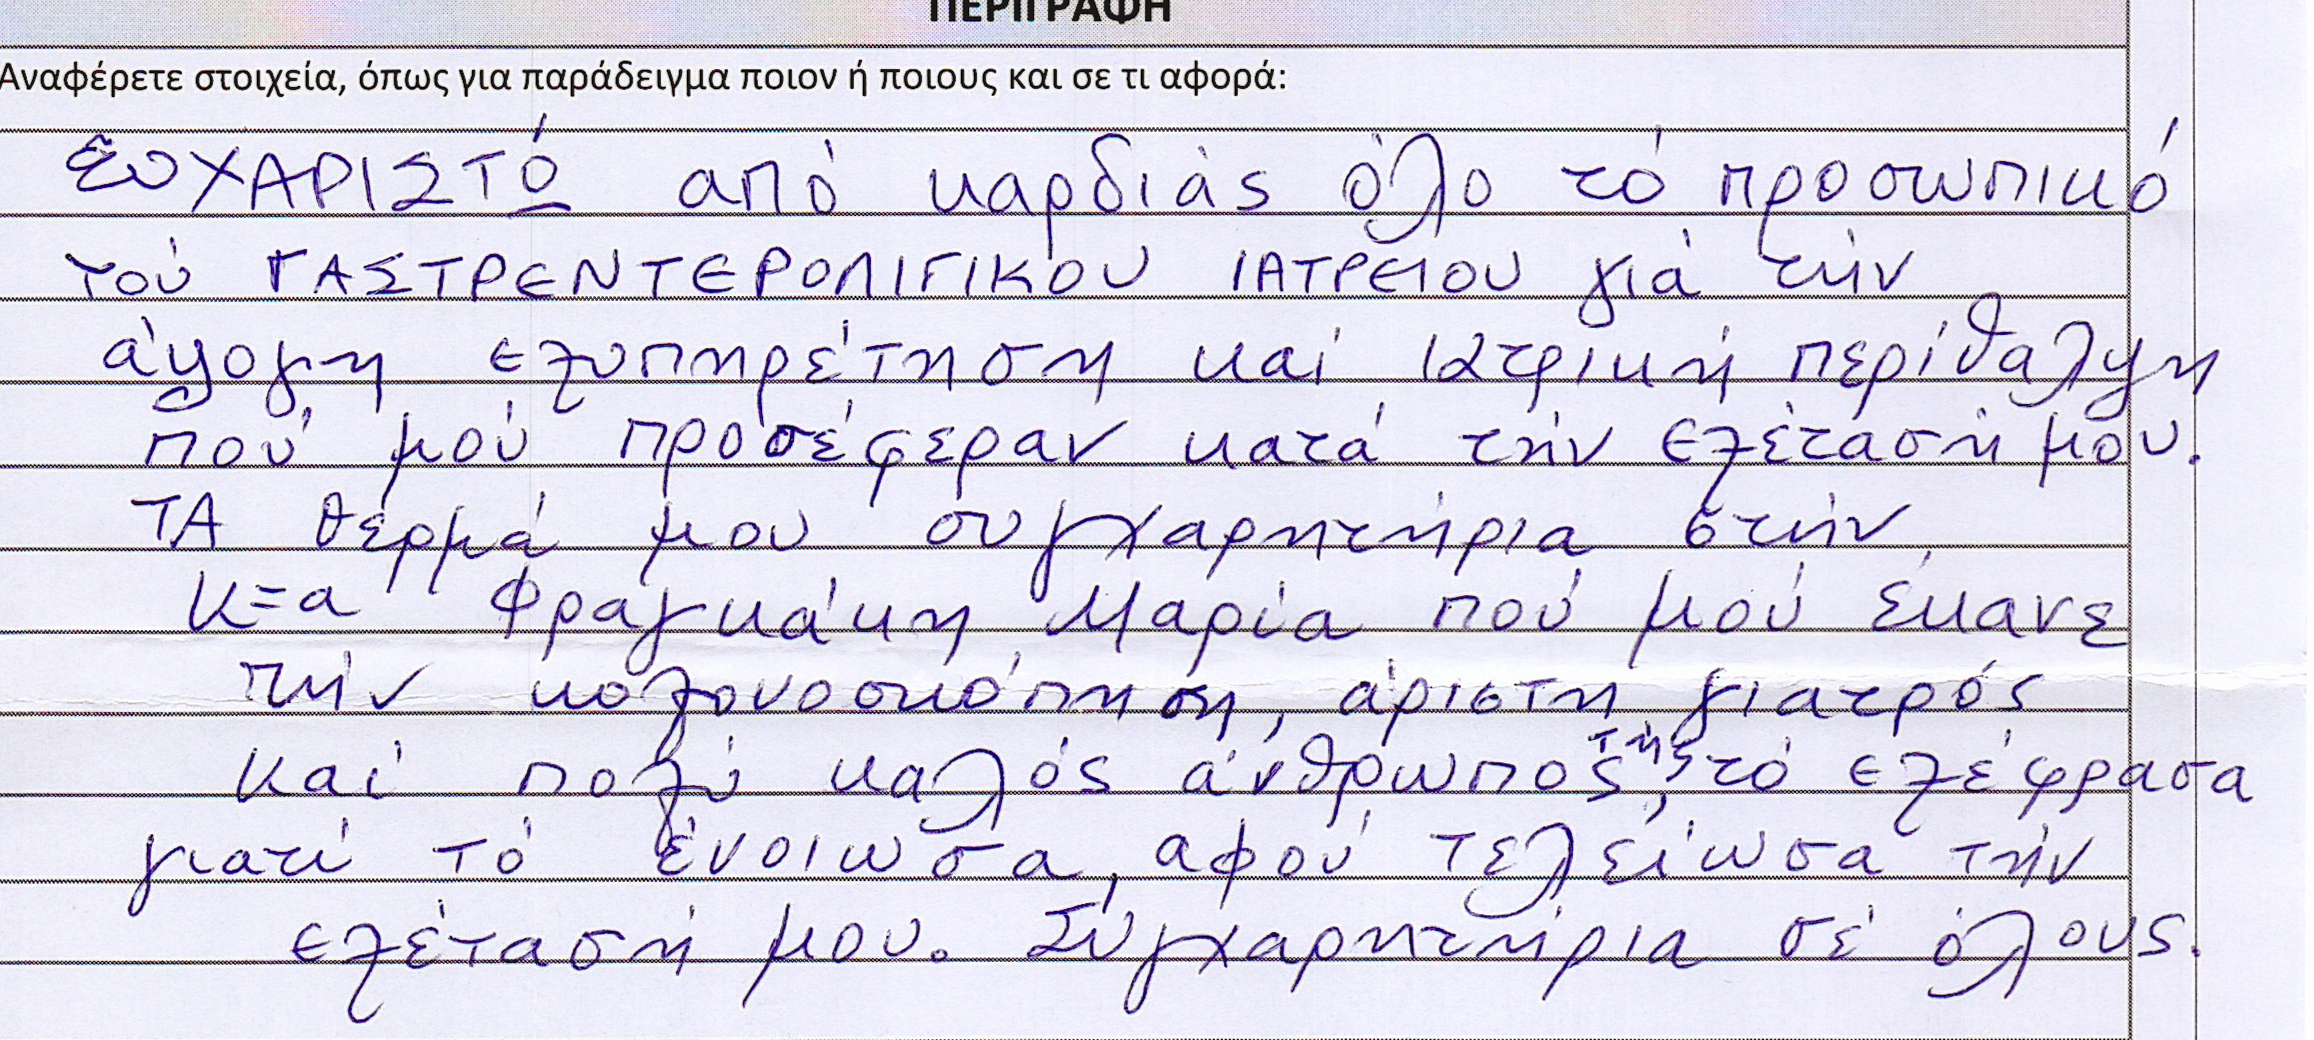 ΠΕΡΙΓΡΑΦΗ
Αναφέρετε στοιχεία, όπως για παράδειγμα ποιον ή ποιους και σε τι αφορά:
ΕΥΧΑΡΙΣΤΏ από καρδιάς όλο τό προσωπικό
τού ΓΑΣΤΡΕΝΤΕΡΟΛΙΓΙΚΟΥ ΙΑΤΡΕΙΟΥ γιά τήν
άψογη εξυπηρέτηση καί ιατρική περίθαλψη
πού μού προσέφεραν κατά τήν εξέτασή μου.
ΤΑ θερμά μου συγχαρητήρια στήν
Κ=α Φραγκάκη Μαρία πού μού έκανε
τήν κολονοσκόπηση, άριστη γιατρός
καί πολύ καλός άνθρωπος, τής τό εξέφρασα
γιατί τό ένοιωσα, αφού τελείωσα τήν
εξέτασή μου. Συγχαρητήρια σέ όλους.